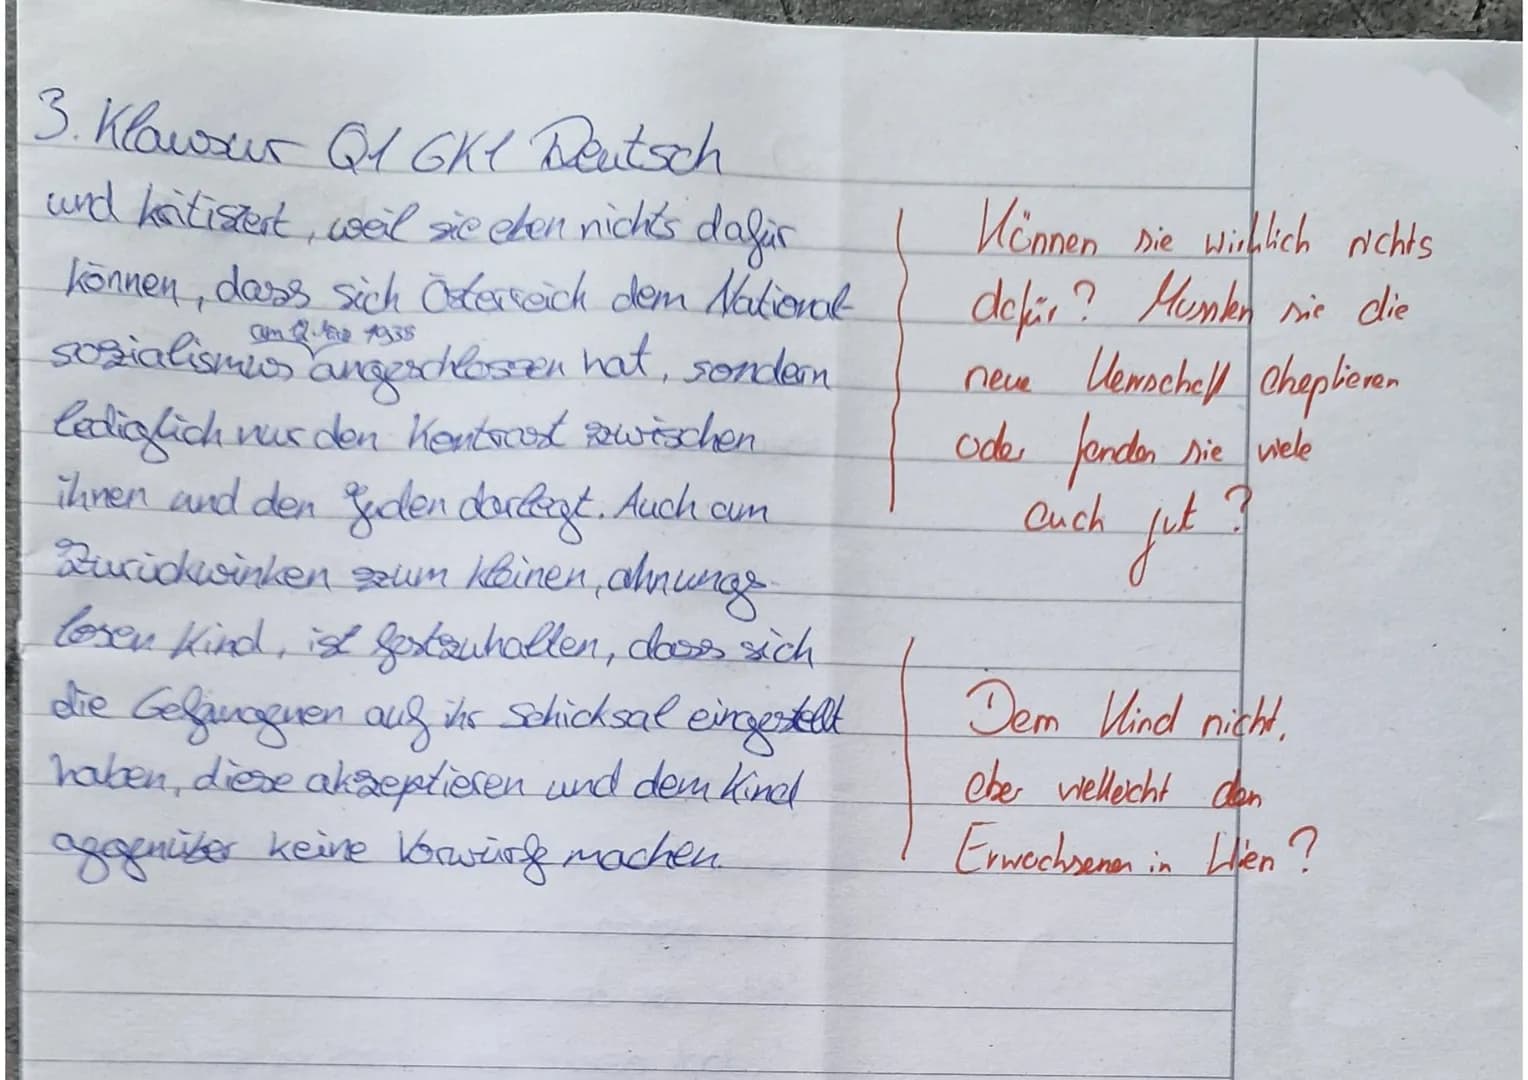 3. Klausur Q1 GK1 Deutsch
und kritisiert, weil sie eben nichts dafür
können, dass sich Österreich dem National-
am 12. März 1938
sozialismus angeschlossen hat, sondern
lediglich nur den Kontrast zwischen
ihnen und den Juden darlegt. Auch am
Zurückwinken zum kleinen, ahnungs-
losen Kind, ist festzuhalten, dass sich
die Gefangenen auf ihr Schicksal eingestellt
haben, diese akzeptieren und dem Kind
gegenüber keine Vorwürfe machen.
Können sie wirklich nichts
dafür? Mussten sie die
neue Herrschaft akzeptieren
oder fanden sie viele
auch gut?
Dem Kind nicht,
aber vielleicht den
Erwachsenen in Wien?